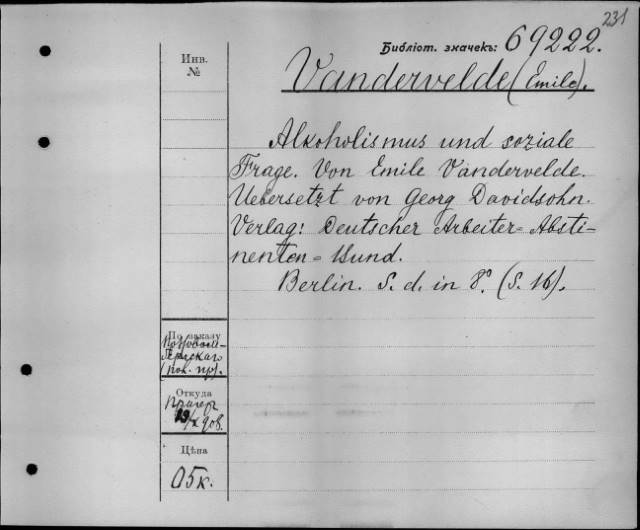 231
Библіот. значекъ: 69222.
Инв.
№
Vandervelde (Emile).
Alkoholismus und soziale
Frage. Von Emile Vandervelde.
Uebersetzt von Georg Davidsohn.
Verlag: Deutscher Arbeiter=Absti-
nenten=Bund.
Berlin. S. d. in 8º. (S. 16).
По заказу
Откуда
908.
Цѣна
05к.